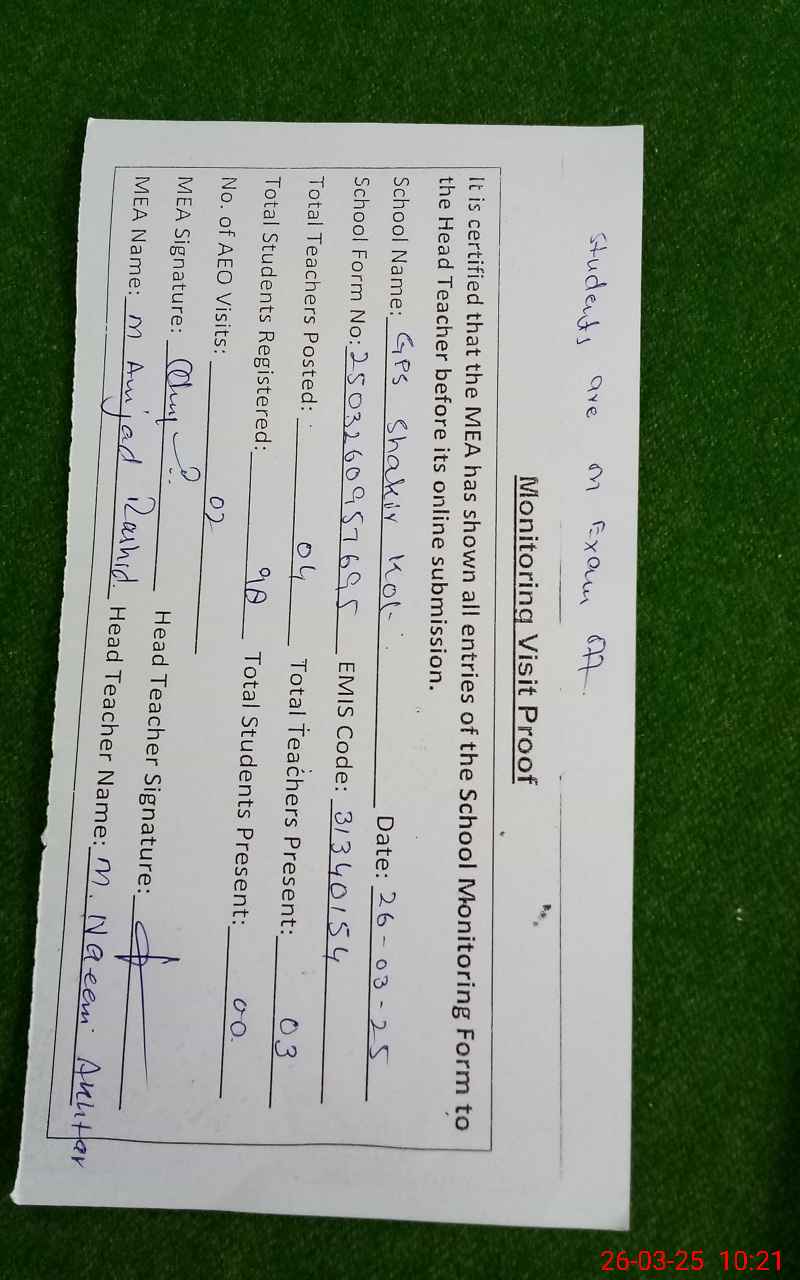 Students are in Exam Off.
Monitoring Visit Proof
It is certified that the MEA has shown all entries of the School Monitoring Form to
the Head Teacher before its online submission.
School Name: GPS Shakir Kot Date: 26-03-25
School Form No: 2503260957695 EMIS Code: 31340154
Total Teachers Posted: 04 Total Teachers Present: 03
Total Students Registered: Total Students Present: 00
No. of AEO Visits: 02
MEA Signature: Head Teacher Signature:
MEA Name: M Amjad Rashid Head Teacher Name: M. Naeem Akhtar
26-03-25 10:21